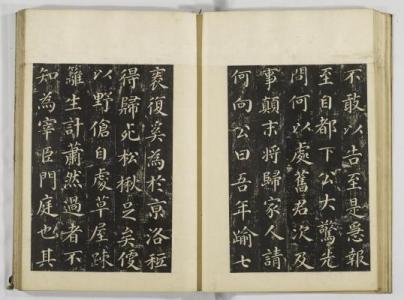 不敢以告至是急報
至自都下公大驚先
問何以處舊君次及
事顛末將歸家人請
何向公曰吾年踰七
衰復奚為於京洛秪
得歸死松楸足矣
以野傖自處草屋疎
籬生計蕭然過者不
知為宰臣門庭也其